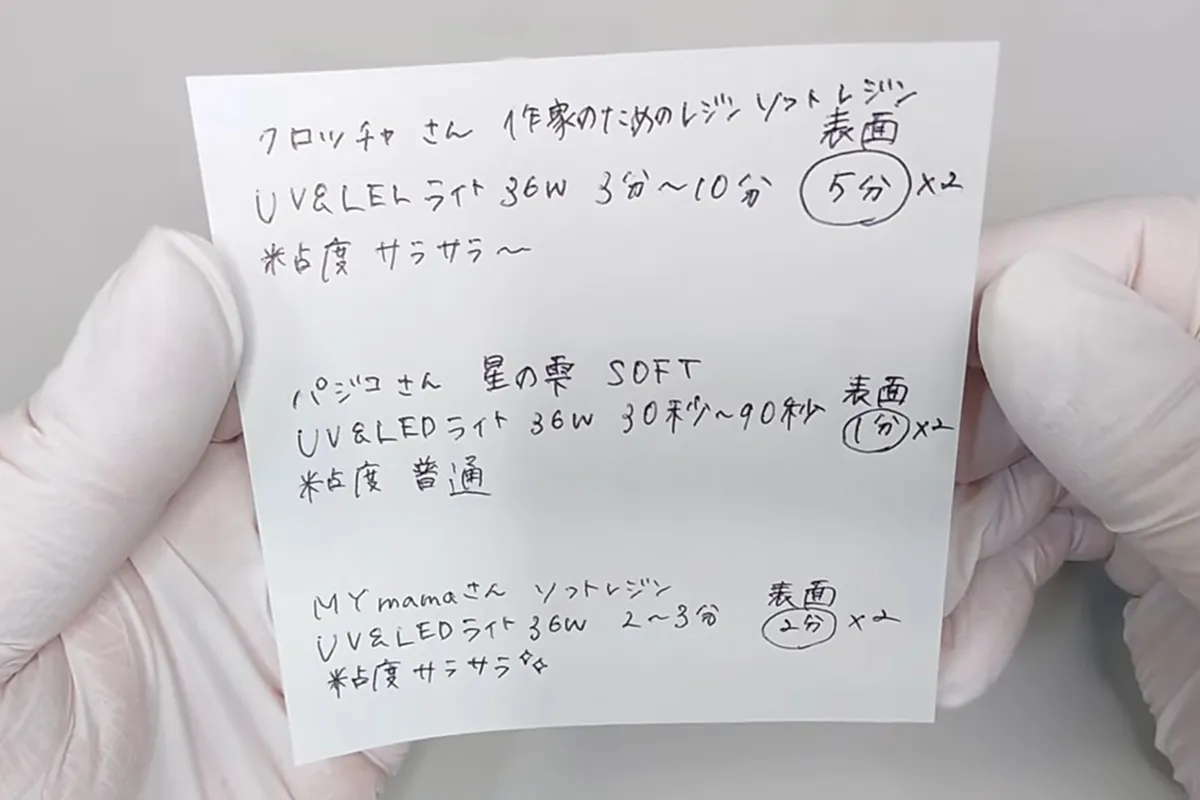 クロッチャさん 作家のためのレジン ソフトレジン
表面
UV&LEDライト 36W 3分～10分 5分 ×2
粘度 サラサラ～
パジコさん 星の雫 SOFT
表面
UV&LEDライト 36W 30秒～90秒 1分 ×2
粘度 普通
MYmamaさん ソフトレジン 表面
UV&LEDライト 36W 2～3分 2分 ×2
粘度 サラサラ✧✧